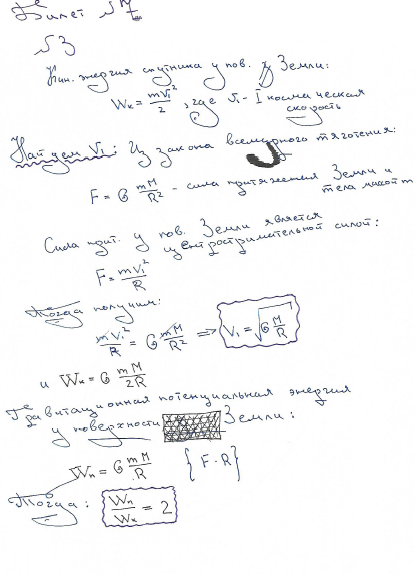 Билет №7
№3
Кин. энергия спутника у пов. Земли:
Wк = mV₁²/2, где V₁ - I космическая
скорость
Найдем V₁: Из закона всемирного тяготения:
F = G mM/R² - сила притяжения Земли и
тела массой m
Сила прит. у пов. Земли является
центростримательной силой:
F = mV₁²/R
Тогда получим:
mV₁²/R = G mM/R² => V₁ = √(G M/R)
и Wк = G mM/2R
Гравитационная потенциальная энергия
у поверхности Земли:
Wп = G mM/R {F·R}
Тогда: Wп/Wк = 2